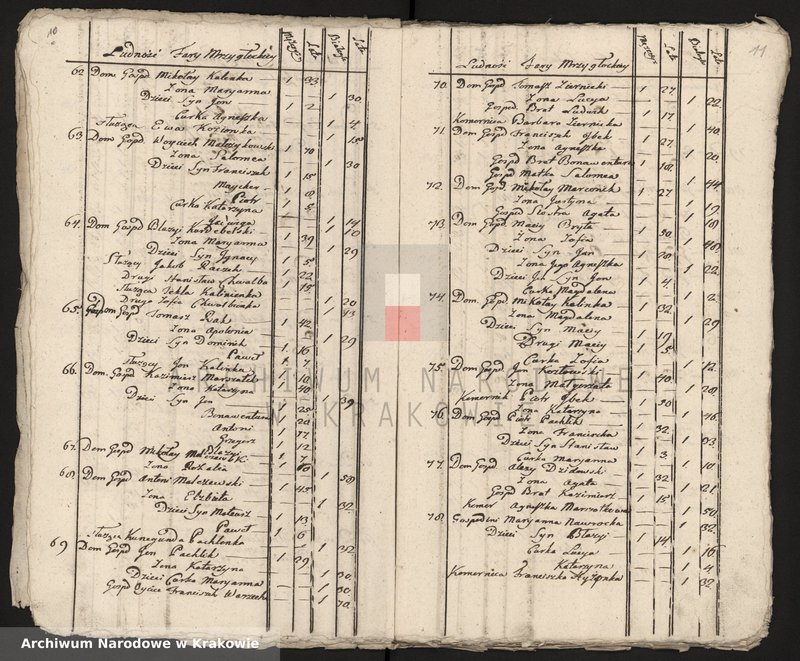 10
Ludność Fary Mrzygłockiey
Lata
Lata
62 Dom Gospd Mikołay Kalenka 1 33
Żona Maryanna 1 30
Dzieci Syn Jan 1 2
Curka Agnieszka 1 4
Służąca Ewa 1 15
63. Dom Gospd Woyciech 1 70
Żona Salomea 1 30
Dzieci Syn Franciszek 1 15
1 8
Piotr 1 5
Curka Katarzyna 1 14
Jadwiga 1 10
64. Dom Gospd Błażej 1 39
Żona Maryanna 1 29
Dzieci Syn Ignacy 1 5
Służący Jakub 1 22
Drugi Stanisław Chwalba 1 15
Służąca Tekla Kalenianka 1 20
Druga Zofia Chwalbianka 1 13
65. Dom Gospd Tomasz Żak 1 42
Żona Apolonia 1 29
Dzieci Syn Dominik 1 16
Paweł 1 7
Służący Jan Kalenka 1 18
66. Dom. Gospd Kazimierz 1 40
Żona Katarzyna 1 39
Dzieci Syn Jan 1 25
Bonawentura 1 20
Antoni 1 17
Grzegorz 1 12
Błażej 1 7
67. Dom Gospd Mikołay Malczewski 1 60
Żona Rozalia 1 50
68. Dom Gospd Antoni Malczewski 1 45
Żona Elżbieta 1 32
Dzieci Syn Mateusz 1 13
Paweł 1 6
Służąca Kunegunda Pachlonka 1 32
69 Dom Gospd Jan Pachlik 1 29
Żona Katarzyna 1 30
Dzieci Curka Maryanna
Gospd Oyciec Franciszek 1 70.
11
Ludność Fary Mrzygłockiey
Lata
Lata
70. Dom Gospd Tomasz Ziernicki 1 27
Żona Łucya 1 22.
Gospd Brat Ludwik 1 17
Komornica Barbara Ziernicka 1 40.
71. Dom Gospd Franciszek Gbek 1 27.
Żona Agnieszka 1 20.
Gospd Brat Bonawentura 1 18.
Gospd Matka Salomea 1 44
72. Dom Gospd. Mikołay 1 27
Żona Justyna 1 19
Gospd Siostra Agata 1 18
73. Dom Gospd Maciey Bryła 1 50
Żona Zofia 1 48
Dzieci Syn Jan 1 20
Żona Jego Agnieszka 1 22
Dzieci Syn Jan 1 4
Curka Magdalena 1 2
74. Dom Gospd Mikołay Kalenka 1 32
Żona Magdalena 1 29
Dzieci Syn Maciey 1
Drugi Maciey 1 5
Curka Zofia 1 12
75. Dom Gospd Jan Kozłowski 1 40
Żona Małgorzata 1 28
Komornik Piotr Gbek 1 50
Żona Katarzyna 1 46
76. Dom Gospd Piotr Pachlik 1 32
Żona Franciszka 1 33
Dzieci Syn Stanisław 1 3
Curka Maryanna 1 10
77. Dom Gospd 1 32
Żona Agata 1 21
Gospd Brat Kazimierz 1 15
Komor Agnieszka 1 50
78. Gospodini Maryanna Nawrocka 1 32.
Dzieci Syn Błażej 1 14
Curka Łucya 1 16
Katarzyna 1 4
Komornica Franciszka 1 32.
ARCHIWUM NARODOWE
W KRAKOWIE
Archiwum Narodowe w Krakowie